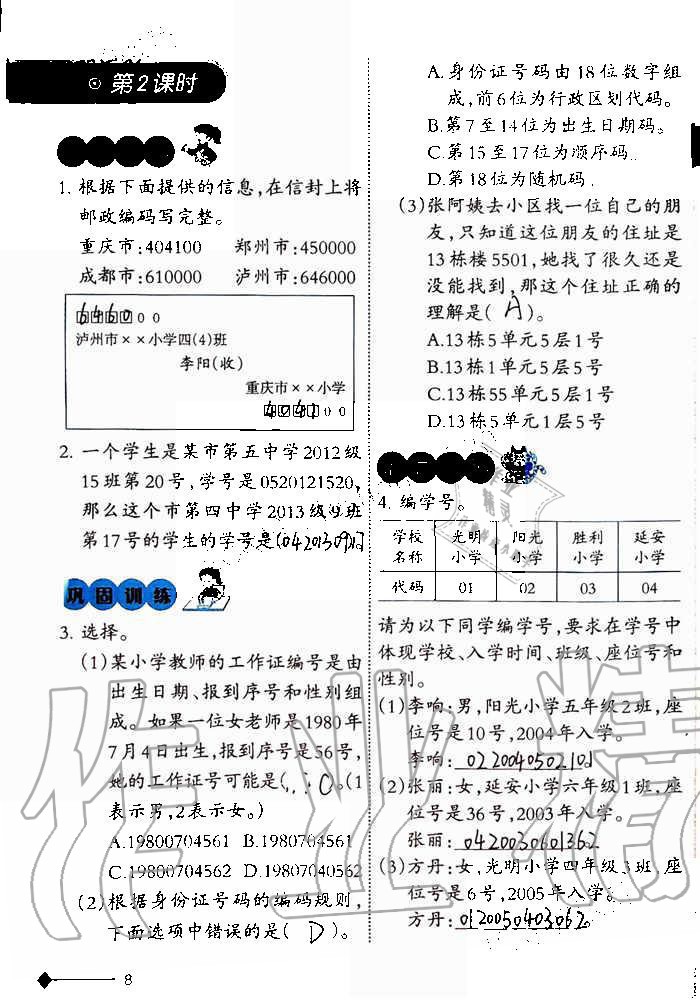 第2课时
1. 根据下面提供的信息,在信封上将
邮政编码写完整。
重庆市:404100 郑州市:450000
成都市:610000 泸州市:646000
646000
泸州市××小学四(4)班
李阳(收)
重庆市××小学
404100
2. 一个学生是某市第五中学2012级
15班第20号,学号是0520121520,
那么这个市第四中学2013级9班
第17号的学生的学号是(0420130917)
巩固训练
3. 选择。
(1)某小学教师的工作证编号是由
出生日期、报到序号和性别组
成。如果一位女老师是1980年
7月4日出生,报到序号是56号,
她的工作证号可能是( C )。(1
表示男,2表示女。)
A.19800704561 B.1980704561
C.19800704562 D.19807040562
(2)根据身份证号码的编码规则,
下面选项中错误的是( D )。
8
A.身份证号码由18位数字组
成,前6位为行政区划代码。
B.第7至14位为出生日期码。
C.第15至17位为顺序码。
D.第18位为随机码。
(3)张阿姨去小区找一位自己的朋
友,只知道这位朋友的住址是
13栋楼5501,她找了很久还是
没能找到,那这个住址正确的
理解是( A )。
A.13栋5单元5层1号
B.13栋5单元1层5号
C.13栋55单元1层1号
D.13栋5单元5层5号
4. 编学号。
学校名称 光明小学 阳光小学 胜利小学 延安小学
代码 01 02 03 04
请为以下同学编学号,要求在学号中
体现学校、入学时间、班级、座位号和
性别。
(1)李响:男,阳光小学五年级2班,座
位号是10号,2004年入学。
李响:0220040502101
(2)张丽:女,延安小学六年级1班,座
位号是36号,2003年入学。
张丽:0420030601362
(3)方丹:女,光明小学四年级3班,座
位号是6号,2005年入学。
方丹:0120050403062
作业精灵